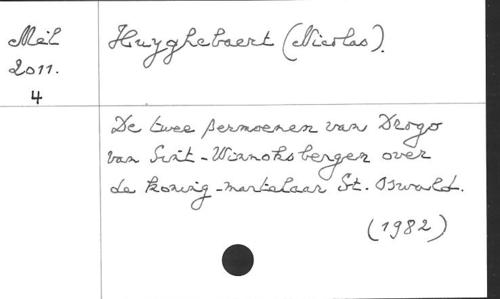 Mél
2011.
4
Huyghebaert (Nicolas).
De twee sermoenen van Drogo
van Sint-Winnoksbergen over
de koning-martelaar St. Oswald.
(1982)